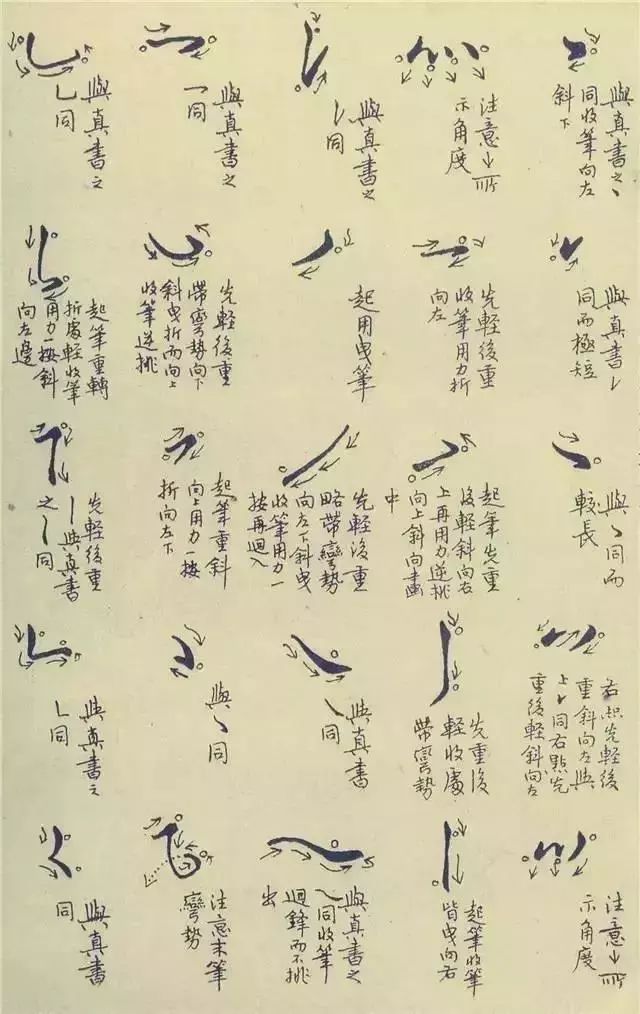 與真書之丶
同收筆向左
斜下
與真書㇀
同而極短
與丶同而
較長
右點先輕後
重斜向左與
上㇀同右點先
重後輕斜向左
注意↓所
示角度
注意↓所
示角度
先輕後重
收筆用力折
向左
起筆先重
後輕斜向右
上再用力逆挑
向上斜向畫
中
先重後
輕收處
帶彎勢
起筆收筆
皆曳向右
與真書之
㇀同
起用曳筆
先輕後重
略帶彎勢
向左下斜曳
收筆用力一
按再迴入
與真書
㇏同
與真書之
㇏同收筆
迴鋒而不挑
出
與真書之
一同
先輕後重
帶彎勢向下
斜曳折而向上
收筆逆挑
起筆重斜
向上用力一按
折向左下
與丶同
注意末筆
彎勢
與真書之
乚同
起筆重轉
折處輕收筆
用力一按斜
向左邊
先輕後重
丨與真書
之丨同
與真書之
㇄同
與真書
同